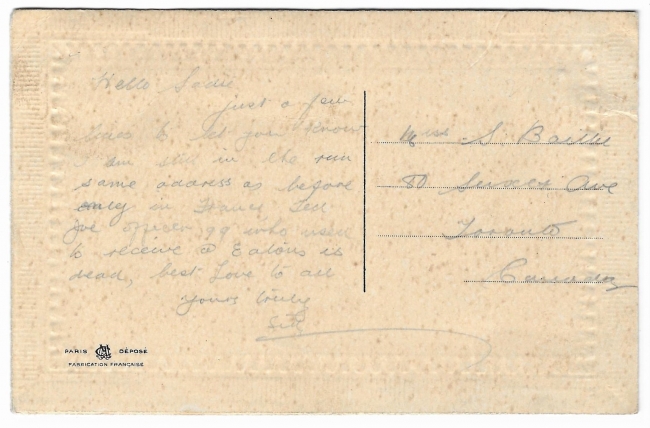 Hello Sadie
just a few
lines to let you know
I am still in the run
same address as before
only in France
Joe who used
to receive @ Eatons is
dead, best Love to all
yours truly
Miss S Baillie
80 Sussex Ave
Toronto
Canada
PARIS DÉPOSÉ
FABRICATION FRANÇAISE